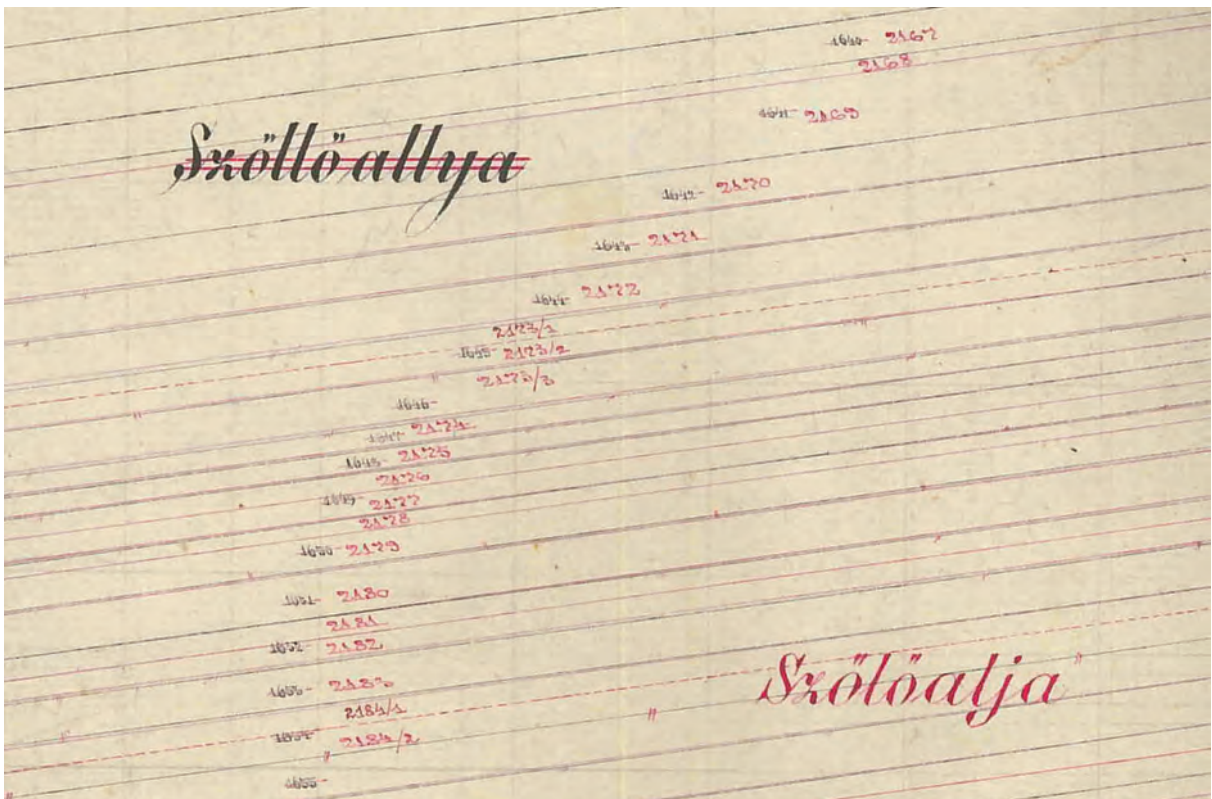 1640- 2167
2168
1641- 2169
Szőllőallya
1642- 2170
1643- 2171
1644- 2172
2173/1
1645- 2173/2
2173/3
1646-
1647- 2174
1648- 2175
2176
1649- 2177
2178
1650- 2179
1651- 2180
2181
1652- 2182
1653- 2183
Szőlőalja
2184/1
1654- 2184/2
1655-